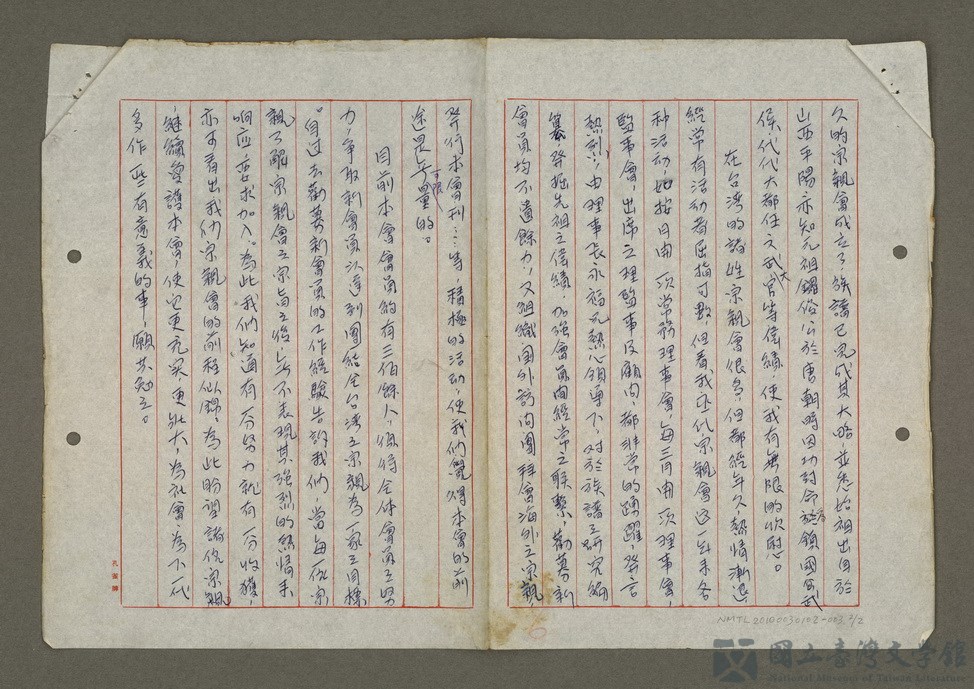 久的宗親會成立了，族譜已完成其大略，並悉始祖出自於
山西平陽亦知元祖鏘俗公於唐朝時因功封命為鎮國公武
侯，代代大都任文武大官等偉績，使我有無限的欣慰。
在台灣的諸姓宗親會很多，但都經年久，熱情漸退，
經常有活動者屈指可數，但看我丘氏宗親會這一年來各
種活動，如按月開一次常務理事會，每三月開一次理事會，
監事會，出席之理監事及顧問，都非常的踴躍，發言
熱烈，由理事長永福兄熱心領導下，對於族譜之研究編
纂，發掘先祖之偉績，加強會員間經常之聯繫，勸募新
會員均不遺餘力，又組織國外訪問團拜會海外之宗親，
發行本會刊…等，積極的活動，使我們覺得本會的前
途是無可限量的。
目前本會會員約有三佰餘人，係將全体會員之努
力，爭取新會員以達到團結全台灣之宗親為一家之目標
。自過去勸募新會員的工作經驗告訴我們，當每一位宗
親了解宗親會之宗旨之後，無不表現其強烈的熱情來
响应要求加入。為此我們知道有一分努力就有一分收獲，
亦可看出我們宗親會的前程似錦，為此盼望諸位宗親
，繼續愛護本會，使它更充实，更壯大，為社會，為下一代
多作一些有意義的事，願共勉之。
孔國譯
NMTL20100030102-003, 2/2
國立臺灣文學館
National Museum of Taiwan Literature